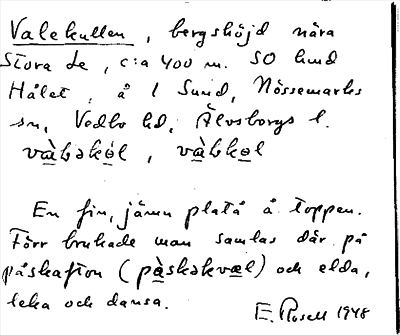 Valekullen, bergshöjd nära
Stora Le, c:a 400 m. SO hmd
Hålet, å 1 Sund, Nössemarks
sn, Vedbo hd, Älvsborgs l.
vàləkól, vàlkəl
En fin, jämn platå å toppen.
Förr brukade man samlas där på
påskafton (pàskəkvæl) och elda,
leka och dansa.
E. Rosell 1948